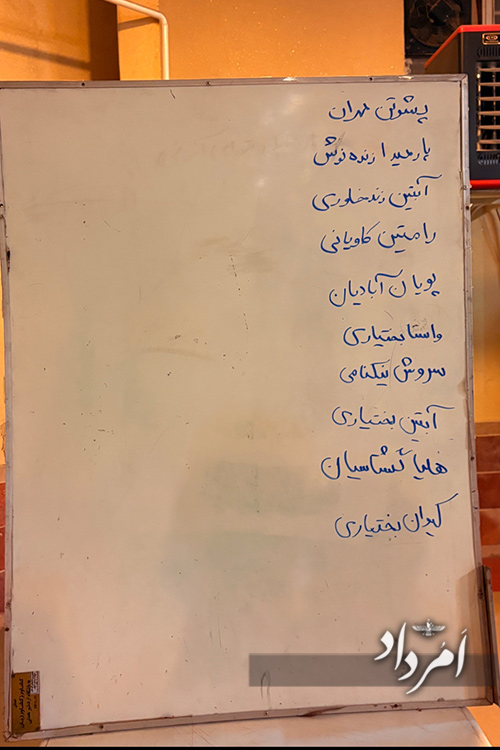 پشوتن مهران
پارمیدا زنده نوش
آبتین زندخاوری
رامتین کاویانی
پویان آبادیان
واستا بختیاری
سروش نیکنامی
آبتین بختیاری
هلیا گشتاسبیان
کیوان بختیاری
اَمُرداد